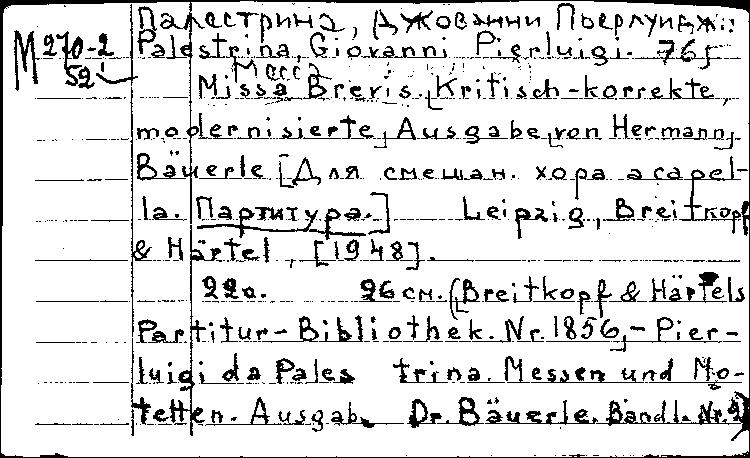 Палестрина, Джованни Пьерлуиджи
M 270-2
52
Palestrina, Giovanni Pierluigi. 765
Месса
Missa Brevis. [Kritisch-korrekte,
modernisierte, Ausgabe, von Hermann,
Bäuerle [Для смешан. хора a capel-
la. Партитура.] Leipzig, Breitkopf
& Härtel, [1948].
22с. 26 см. (Breitkopf & Härtels
Partitur-Bibliothek. Nr. 1856, - Pier-
luigi da Palestrina. Messen und Mo-
tetten. Ausgab. Dr. Bäuerle. Band I. Nr. 2)